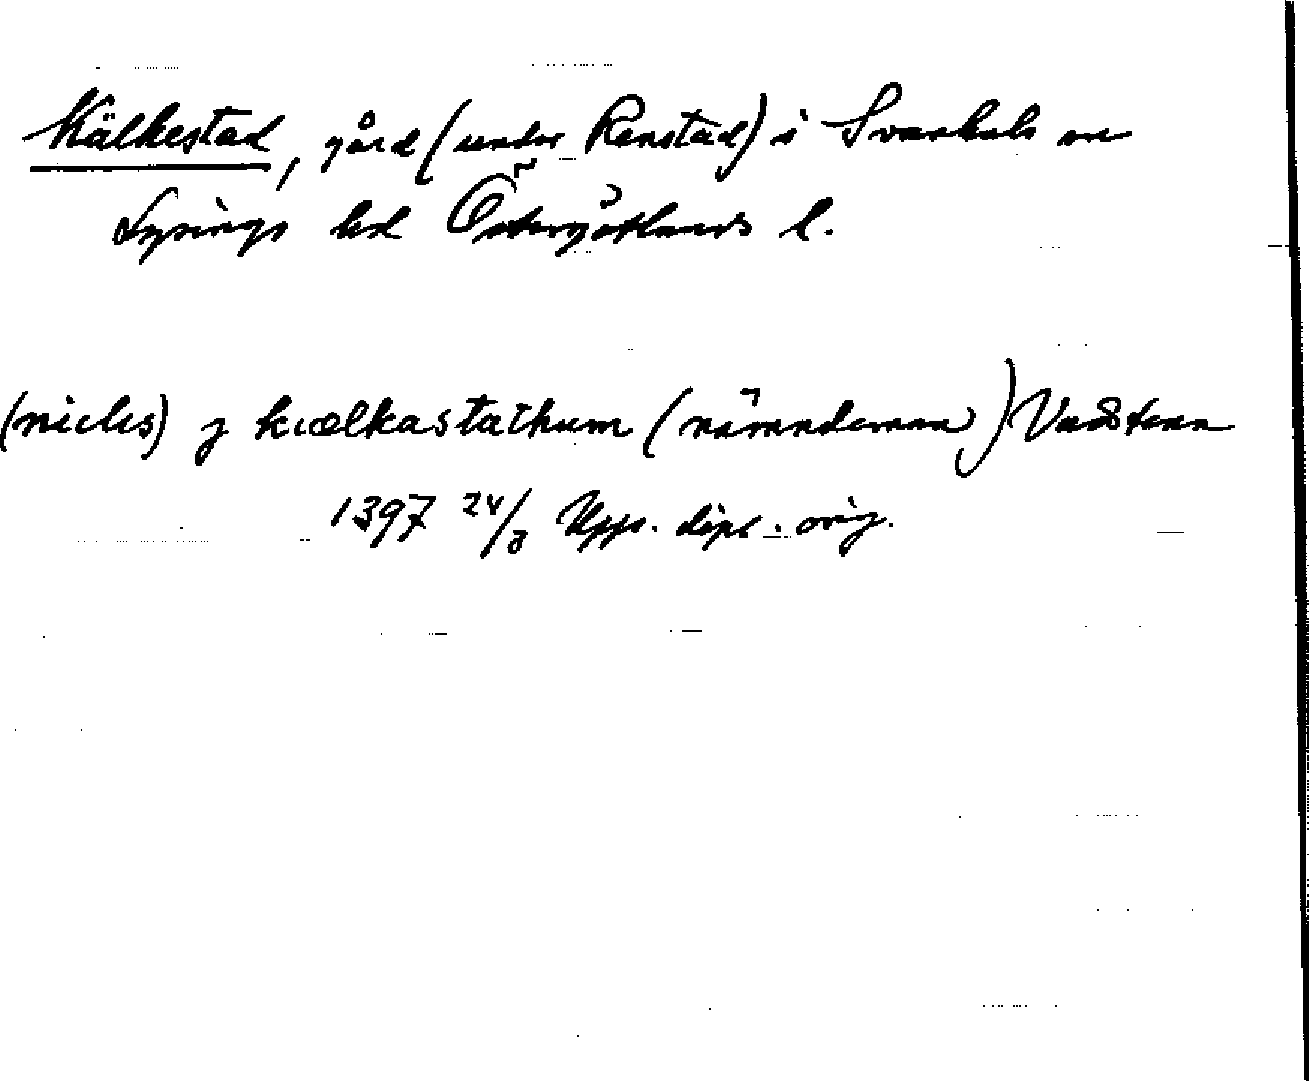 Kälkestad, gård (under Renstad) i Svanhals sn
Lysings hd Östergötlands l.
(niclis) j kiælkastathum (nämndeman) Vadstena
1397 24/3 Upps. dipl. orig.